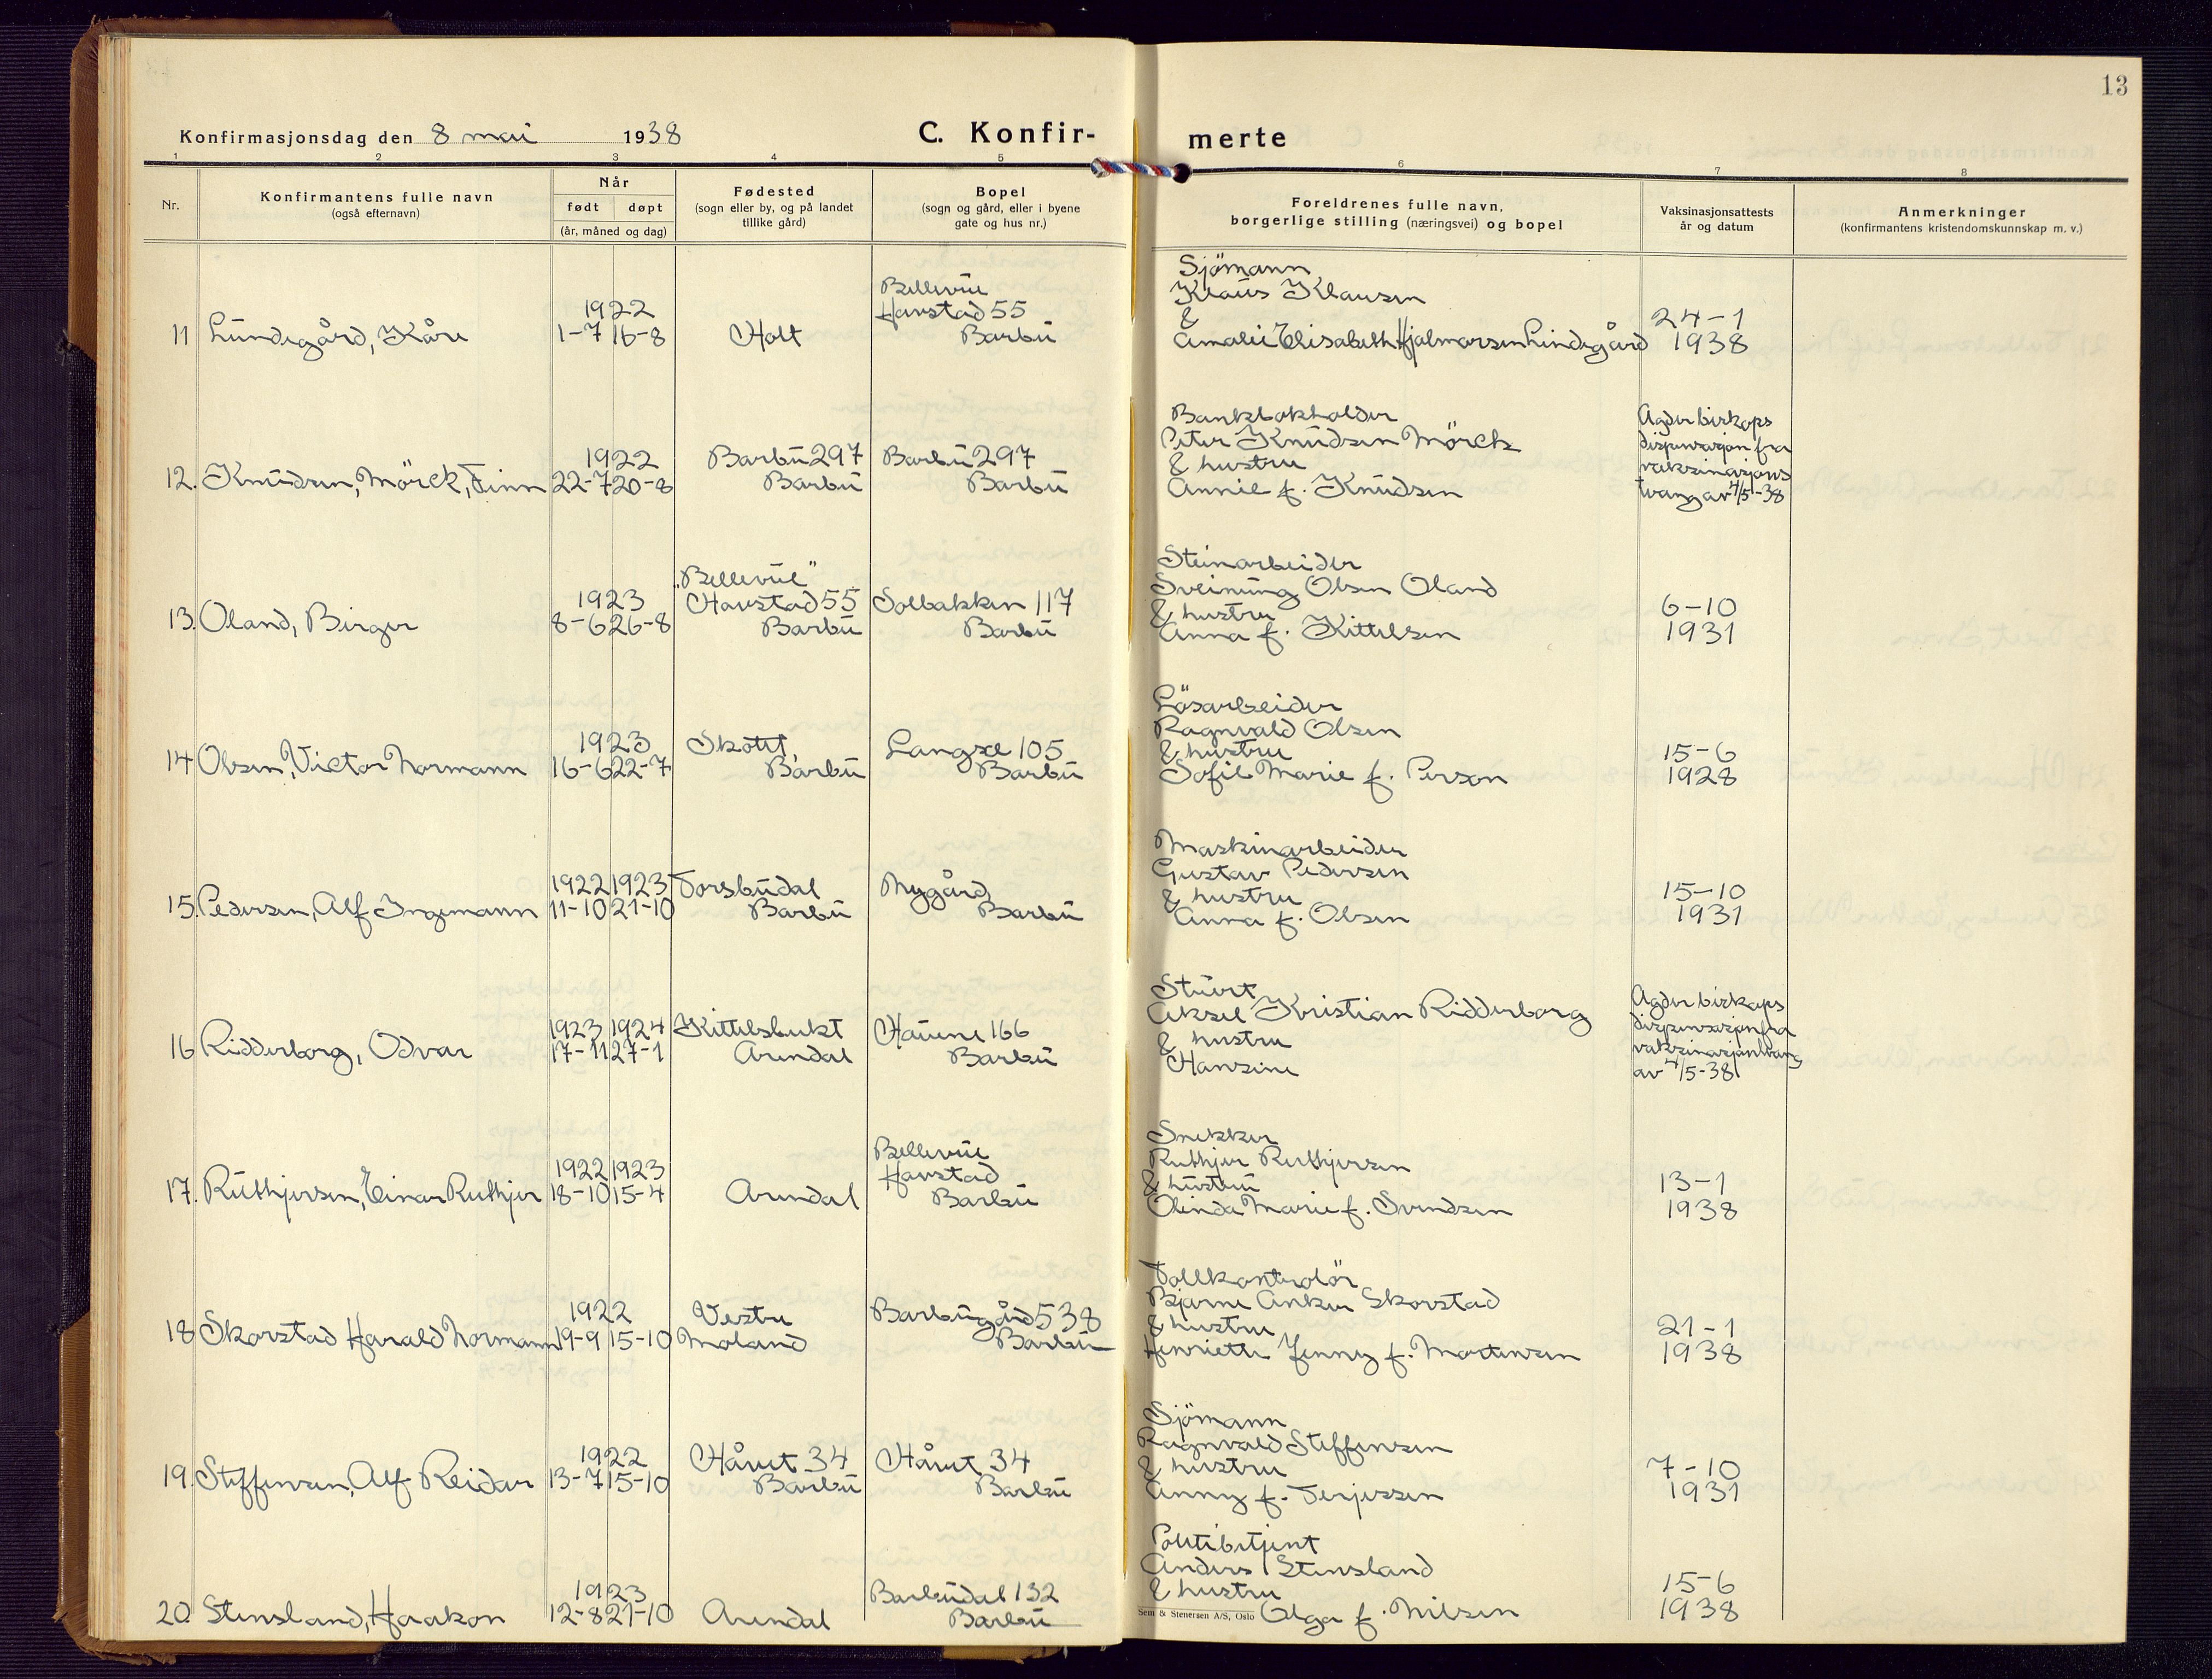 13
Konfirmasjonsdag den 8 mai 1938
C. Konfir-
merte
1 2 3 4 5 6 7 8
Nr.
Konfirmantens fulle navn
(også efternavn)
Når
født døpt
(år, måned og dag)
Fødested
(sogn eller by, og på landet
tillike gård)
Bopel
(sogn og gård, eller i byene
gate og hus nr.)
Foreldrenes fulle navn,
borgerlige stilling (næringsvei) og bopel
Vaksinasjonsattests
år og datum
Anmerkninger
(konfirmantens kristendomskunnskap m. v.)
11 Lundegård, Kåre
1922
1-7 16-8
Holt
Bellevue
Havstad 55
Barbu
Sjömann
Klaus Klausen
&
Amalie Elisabeth Hjalmarsen Lindegård
24-1
1938
12. Knudsen, Mörck, Finn
1922
22-7 20-8
Barbu 297
Barbu
Barbu 297
Barbu
Bankbokholder
Peter Knudsen Mörck
& hustru
Annie f. Knudsen
Agder biskops
dispensasjon fra
vaksinasjons
tvang av 4/5-38
13. Oland, Birger
1923
8-6 26-8
"Bellevue"
Havstad 55
Barbu
Solbakken 117
Barbu
Steinarbeider
Sveinung Olsen Oland
& hustru
Anna f. Kittelsen
6-10
1931
14 Olsen, Victor Normann
1923
16-6 22-7
Barbu
Langsæ 105
Barbu
Lösarbeider
Ragnvald Olsen
& hustru
Sofie Marie f. Person
15-6
1928
15. Pedersen, Alf Ingemann
1922 1923
11-10 21-10
Torsbudal
Barbu
Nygård
Barbu
Maskinarbeider
Gustav Pedersen
& hustru
Anna f. Olsen
15-10
1931
16 Ridderborg, Odvar
1923 1924
17-11 27-1
Kittelsbukt
Arendal
Haune 166
Barbu
Stuert
Aksel Kristian Ridderborg
& hustru
Hansine
Agder biskops
dispensasjon fra
vaksinasjonstvang
av 4/5-38
17. Ruthjersen, Einar Ruthjer
1922 1923
18-10 15-4
Arendal
Bellevue
Havstad
Barbu
Snekker
Ruthjer Ruthjersen
& hustru
Olinda Marie f. Svendsen
13-1
1938
18 Skorstad Harald Normann
1922
19-9 15-10
Vestre
Moland
Barbugård 538
Barbu
Tollkontrolör
Bjarne Anker Skorstad
& hustru
Henriette Jenny f. Mortensen
21-1
1938
19. Steffensen, Alf Reidar
1922
13-7 15-10
Håvet 34
Barbu
Håvet 34
Barbu
Sjömann
Ragnvald Steffensen
& hustru
Anny f. Terjessen
7-10
1931
20. Stensland, Haakon
1923
12-8 21-10
Arendal
Barbudal 132
Barbu
Politibetjent
Anders Stensland
& hustru
Olga f. Nilsen
15-6
1938
Sem & Stenersen A/S, Oslo